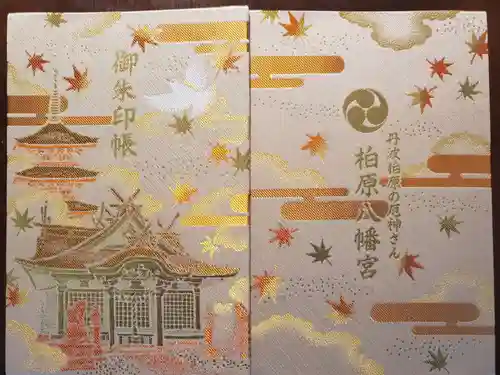 御朱印帳
丹波柏原の厄神さん
柏原八幡宮